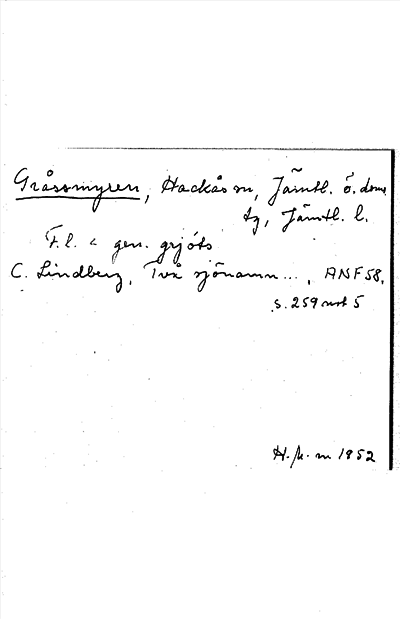 Gråssmyren, Hackås sn, Jämtl. ö. doms.
tg, Jämtl. l.
F.l. < gen. grjóts
C. Lindberg, Två sjönamn..., ANF 58,
s. 259 not 5
1952